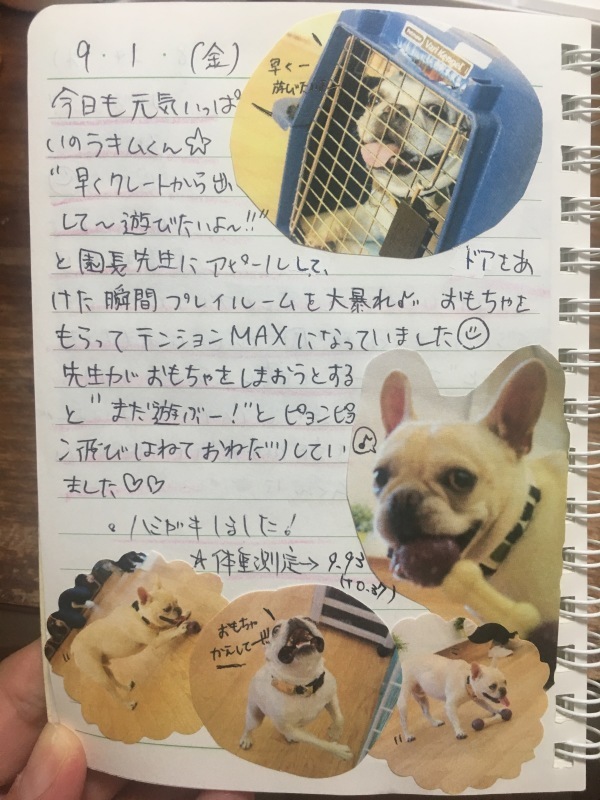 9・1・(金)
今日も元気いっぱ
いのラキムくん☆
"早くクレートから出
して〜遊びたいよ〜!!"
と園長先生にアピールして、ドアをあ
けた瞬間プレイルームを大暴れ♪ おもちゃを
もらってテンションMAXになっていました☺
先生がおもちゃをしまおうとする
と"まだ遊ぶー!"とピョンピョ
ン飛びはねておねだりしてい
ました♡♡
。ハミガキしました!
☆体重測定→9.93
早くー
遊びたい
Vari Kennel
♪
おもちゃ
かえしてー!!